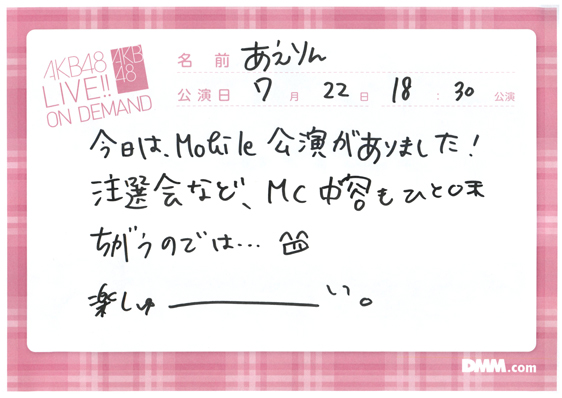 AKB48
LIVE!!
ON DEMAND
AKB
48
名前 あえりん
公演日 7月22日 18:30公演
今日は、Mobile公演がありました!
注選会など、MC内容もひと味
ちがうのでは…
楽しゅ――――い。
DMM.com